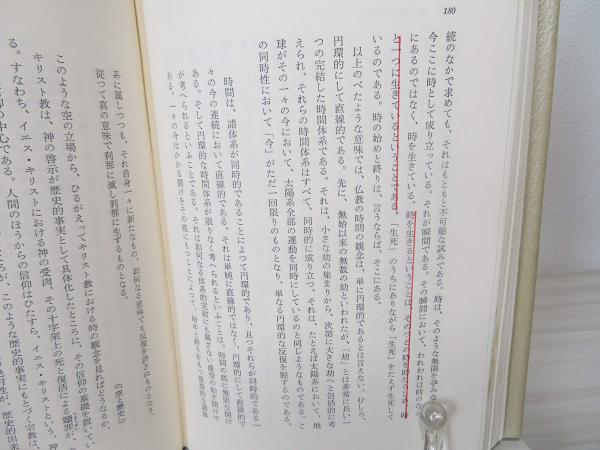 180
続のなかで求めても、それはもともと不可能な試みである。時は、そのような無限を孕みな
今ここに時として成り立っている。それが瞬間である。その瞬間において、われわれは時のなか
にあるのではなく、時を生きている。時を生きるということは、そのつどの時を時たらしめ、時
と一つに生きているということである。「生死」のうちにありながら「生死」をたえず生死して
いるのである。時の始めと終りは、言うならば、そこにある。
以上のべたような意味では、仏教の時間の観念は、単に円環的であるとは言えない。むしろ、
円環的にして直線的である。先に、無始以来の無数の劫といわれたが、「劫」とは非常に長い一
つの完結した時間体系である。それは、小さな劫の集まりから、次第に大きな劫へと包括的に考
えられ、それらの時間体系はすべて、同時的に成り立つ。それは、たとえば太陽系において、地
球がその一々の今において、太陽系全部の運動を同時にしているのと同じようなものである。こ
の同時性において「今」がただ一回限りのものとなり、単なる円環的な反復を脱するのである。
時間は、諸体系が同時的であることによつて円環的であり、且つそれらが同時的である一
々の今の連続において直線的である。それは単純に直線的ではなく、円環的にして直線的で
ある。そして円環的な時間体系が限りなく考へられるといふことは、時間の底に無限な開け
が考へられるといふことである。それは如何なる体系的完結にも属しない虚空の如き開けで
ある。一々の今はかかる開けをその底にもつことによつて、始めと終りをもつ円環的な諸体
系に属しつつも、それ自身一々に新たなもの、如何なる意味でも反復を許さぬものとなり、
従つて真の意味で刹那に滅し刹那に生ずるものとなる。
(『空と歴史』)
このような空の立場から、ひるがえってキリスト教における時の観念を見ればどうなるか。
キリスト教は、神の啓示が歴史的事実として具体化したところに、その信仰の基礎を置いてい
る。すなわち、イエス・キリストにおける神の受肉、その十字架上の死と復活による贖罪が、
の中心である。人間のほうからの信仰はひたすら、イエス・キリストという、神
このような歴史的事実にもとづく宗教は、
歴史的出来